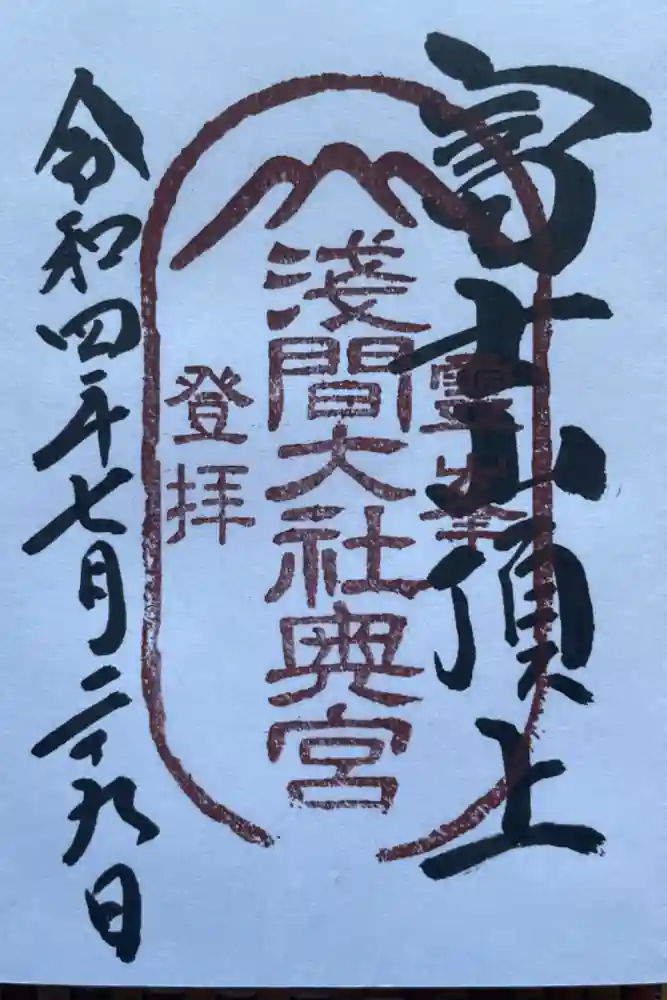 富士山頂上
霊峯
淺間大社奥宮
登拝
令和四年七月二十九日